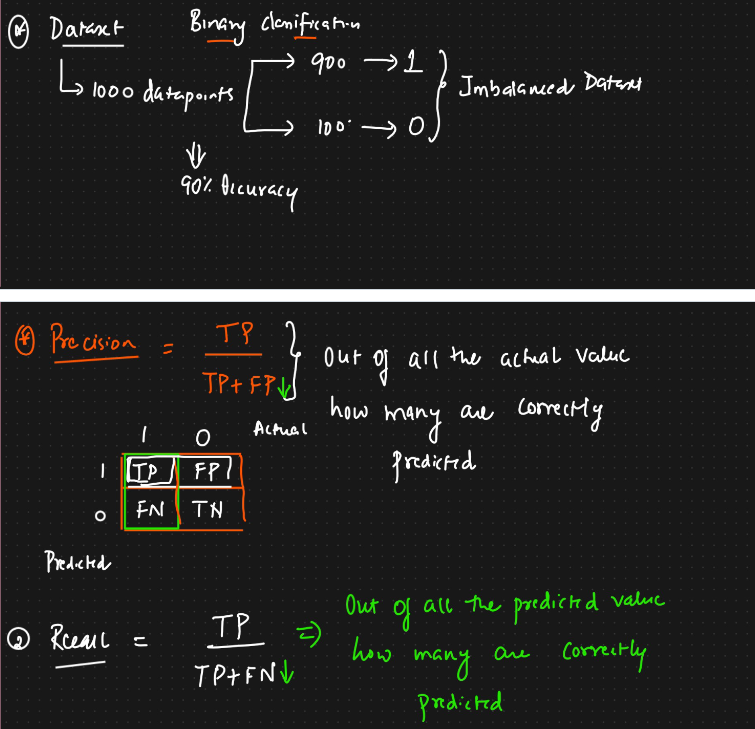 Dataset Binary Classification
→ 1000 datapoints → 900 → 1 } Imbalanced Dataset
→ 100 → 0
⇓
90% Accuracy
Precision = TP / TP + FP ↓ } Out of all the actual value
how many are correctly
predicted
1 0 Actual
1 TP FP
0 FN TN
Predicted
② Recall = TP / TP + FN ↓ ⇒ Out of all the predicted value
how many are correctly
predicted